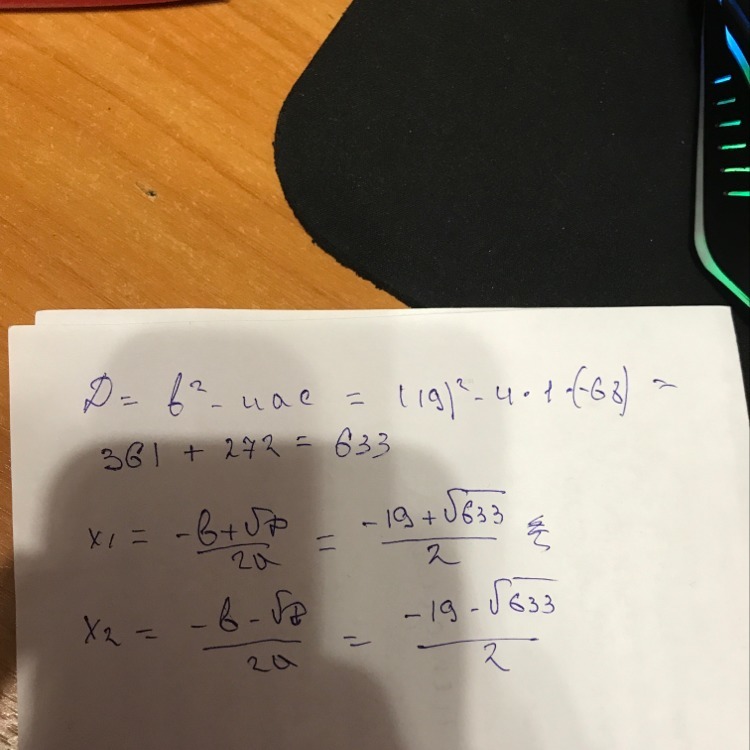 D = b² - 4ac = (19)² - 4 · 1 · (-68) =
361 + 272 = 633
x1 = -b + √D / 2a = -19 + √633 / 2
x2 = -b - √D / 2a = -19 - √633 / 2